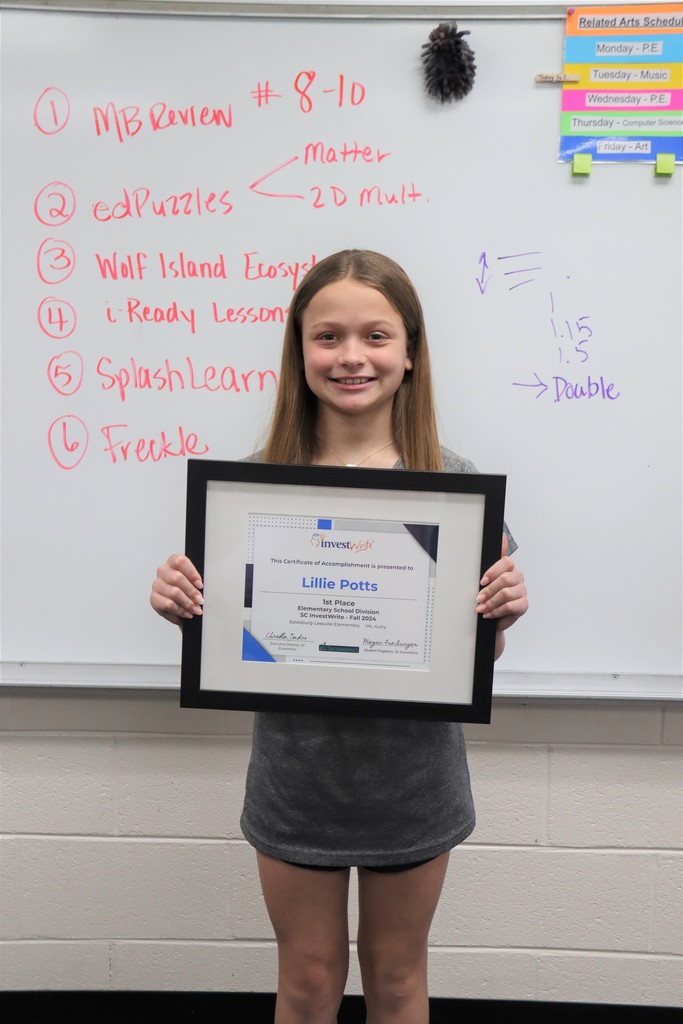 ① MB Review # 8-10
② edPuzzles Matter
2D Mult.
③ Wolf Island Ecosyst
④ i-Ready Lesson
⑤ SplashLearn
⑥ Freckle
Related Arts Schedul
Monday - P.E.
Tuesday - Music
Wednesday - P.E.
Thursday - Computer Science
Friday - Art
1
1.15
1.5
→ Double
investWrite
This Certificate of Accomplishment is presented to
Lillie Potts
1st Place
Elementary School Division
SC InvestWrite - Fall 2024
Batesburg-Leesville Elementary Ms. Autry
Executive Director, SC Economics
Student Programs, SC Economics